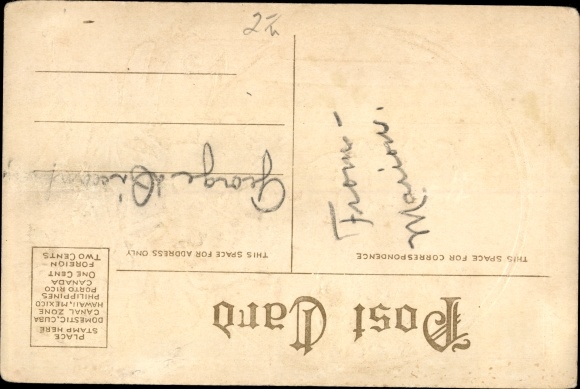 Post Card
PLACE
STAMP HERE
DOMESTIC, CUBA
CANAL ZONE
HAWAII, MEXICO
PHILIPPINES
PORTO RICO
CANADA
ONE CENT
FOREIGN
TWO CENTS
THIS SPACE FOR CORRESPONDENCE
THIS SPACE FOR ADDRESS ONLY
From -
Marion.
George